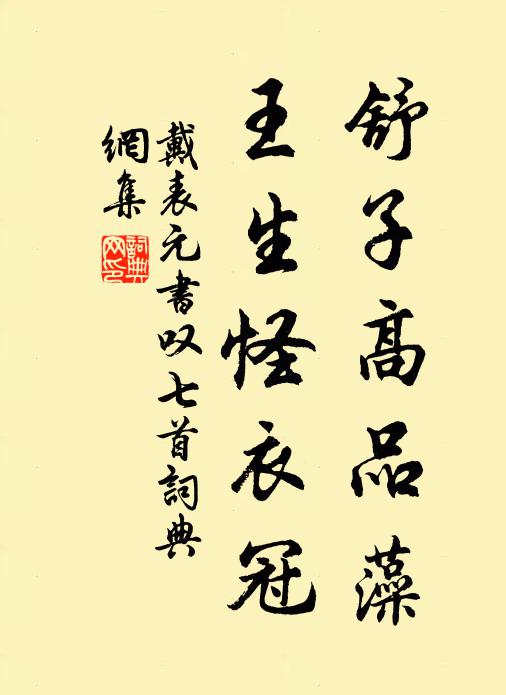 舒子高品藻
王生怪衣冠
戴表元書叹七首詞典
網集
詞典
网印